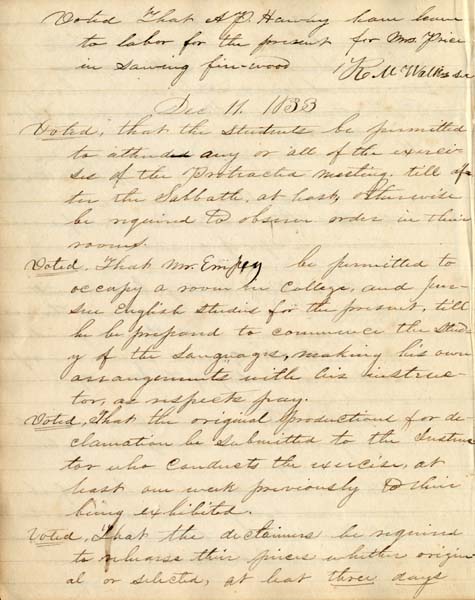 Voted That A D Hawley have leave
to labor for the present for Mrs. Price
in sawing fire-wood R. M. Walker Sec
Dec 11. 1833
Voted, that the students be permitted
to attend any or all of the exerci-
ses of the Protracted meeting, till af-
ter the Sabbath, at least, otherwise
be required to observe order in their
rooms.
Voted, That Mr. Empey be permitted to
occupy a room in College, and pur-
sue English Studies for the present, till
he be prepared to commence the Stud-
y of the Languages, making his own
arrangements with his instruc-
tor, as respects pay.
Voted, That the original productions for de
clamation be submitted to the Instruc
tor who conducts the exercise, at
least one week previously to their
being exhibited.
Voted, That the declaimers be required
to rehearse their pieces whether origin-
al or selected, at least three days